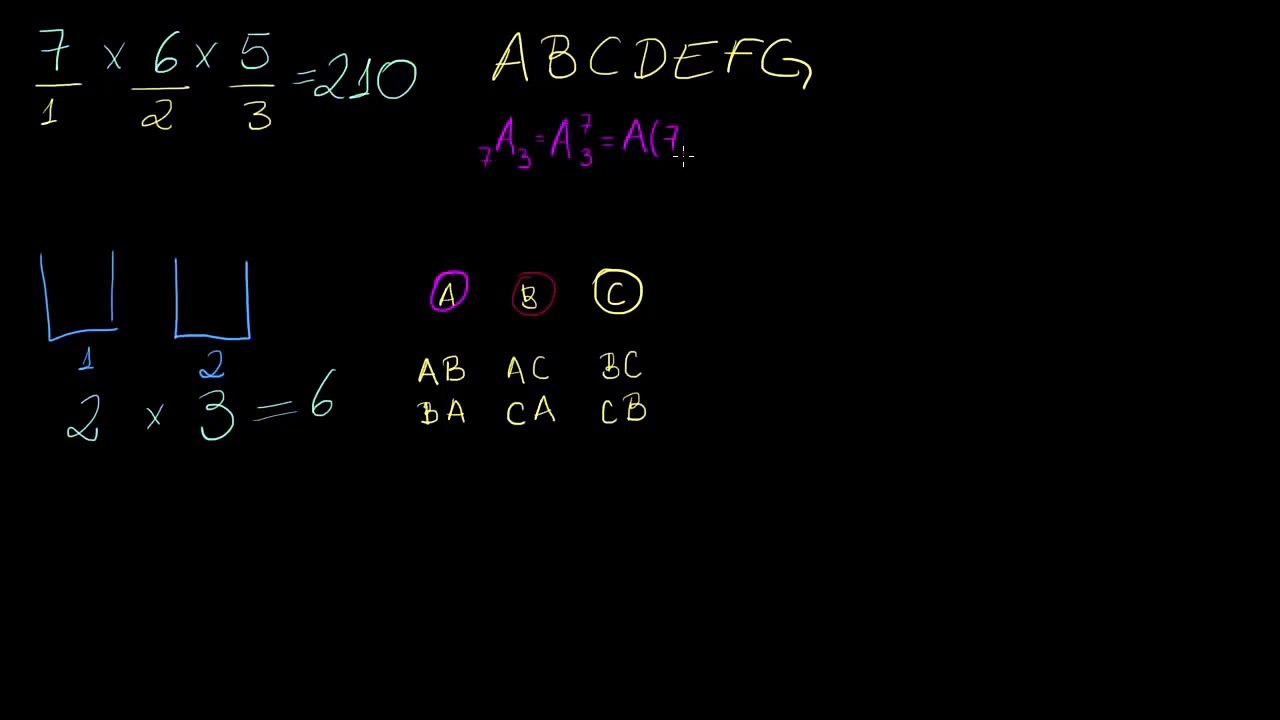 7 × 6 × 5 = 210
1 2 3
A B C D E F G
₇A₃ = A₃⁷ = A(7
1 2
2 × 3 = 6
A B C
AB AC BC
BA CA CB